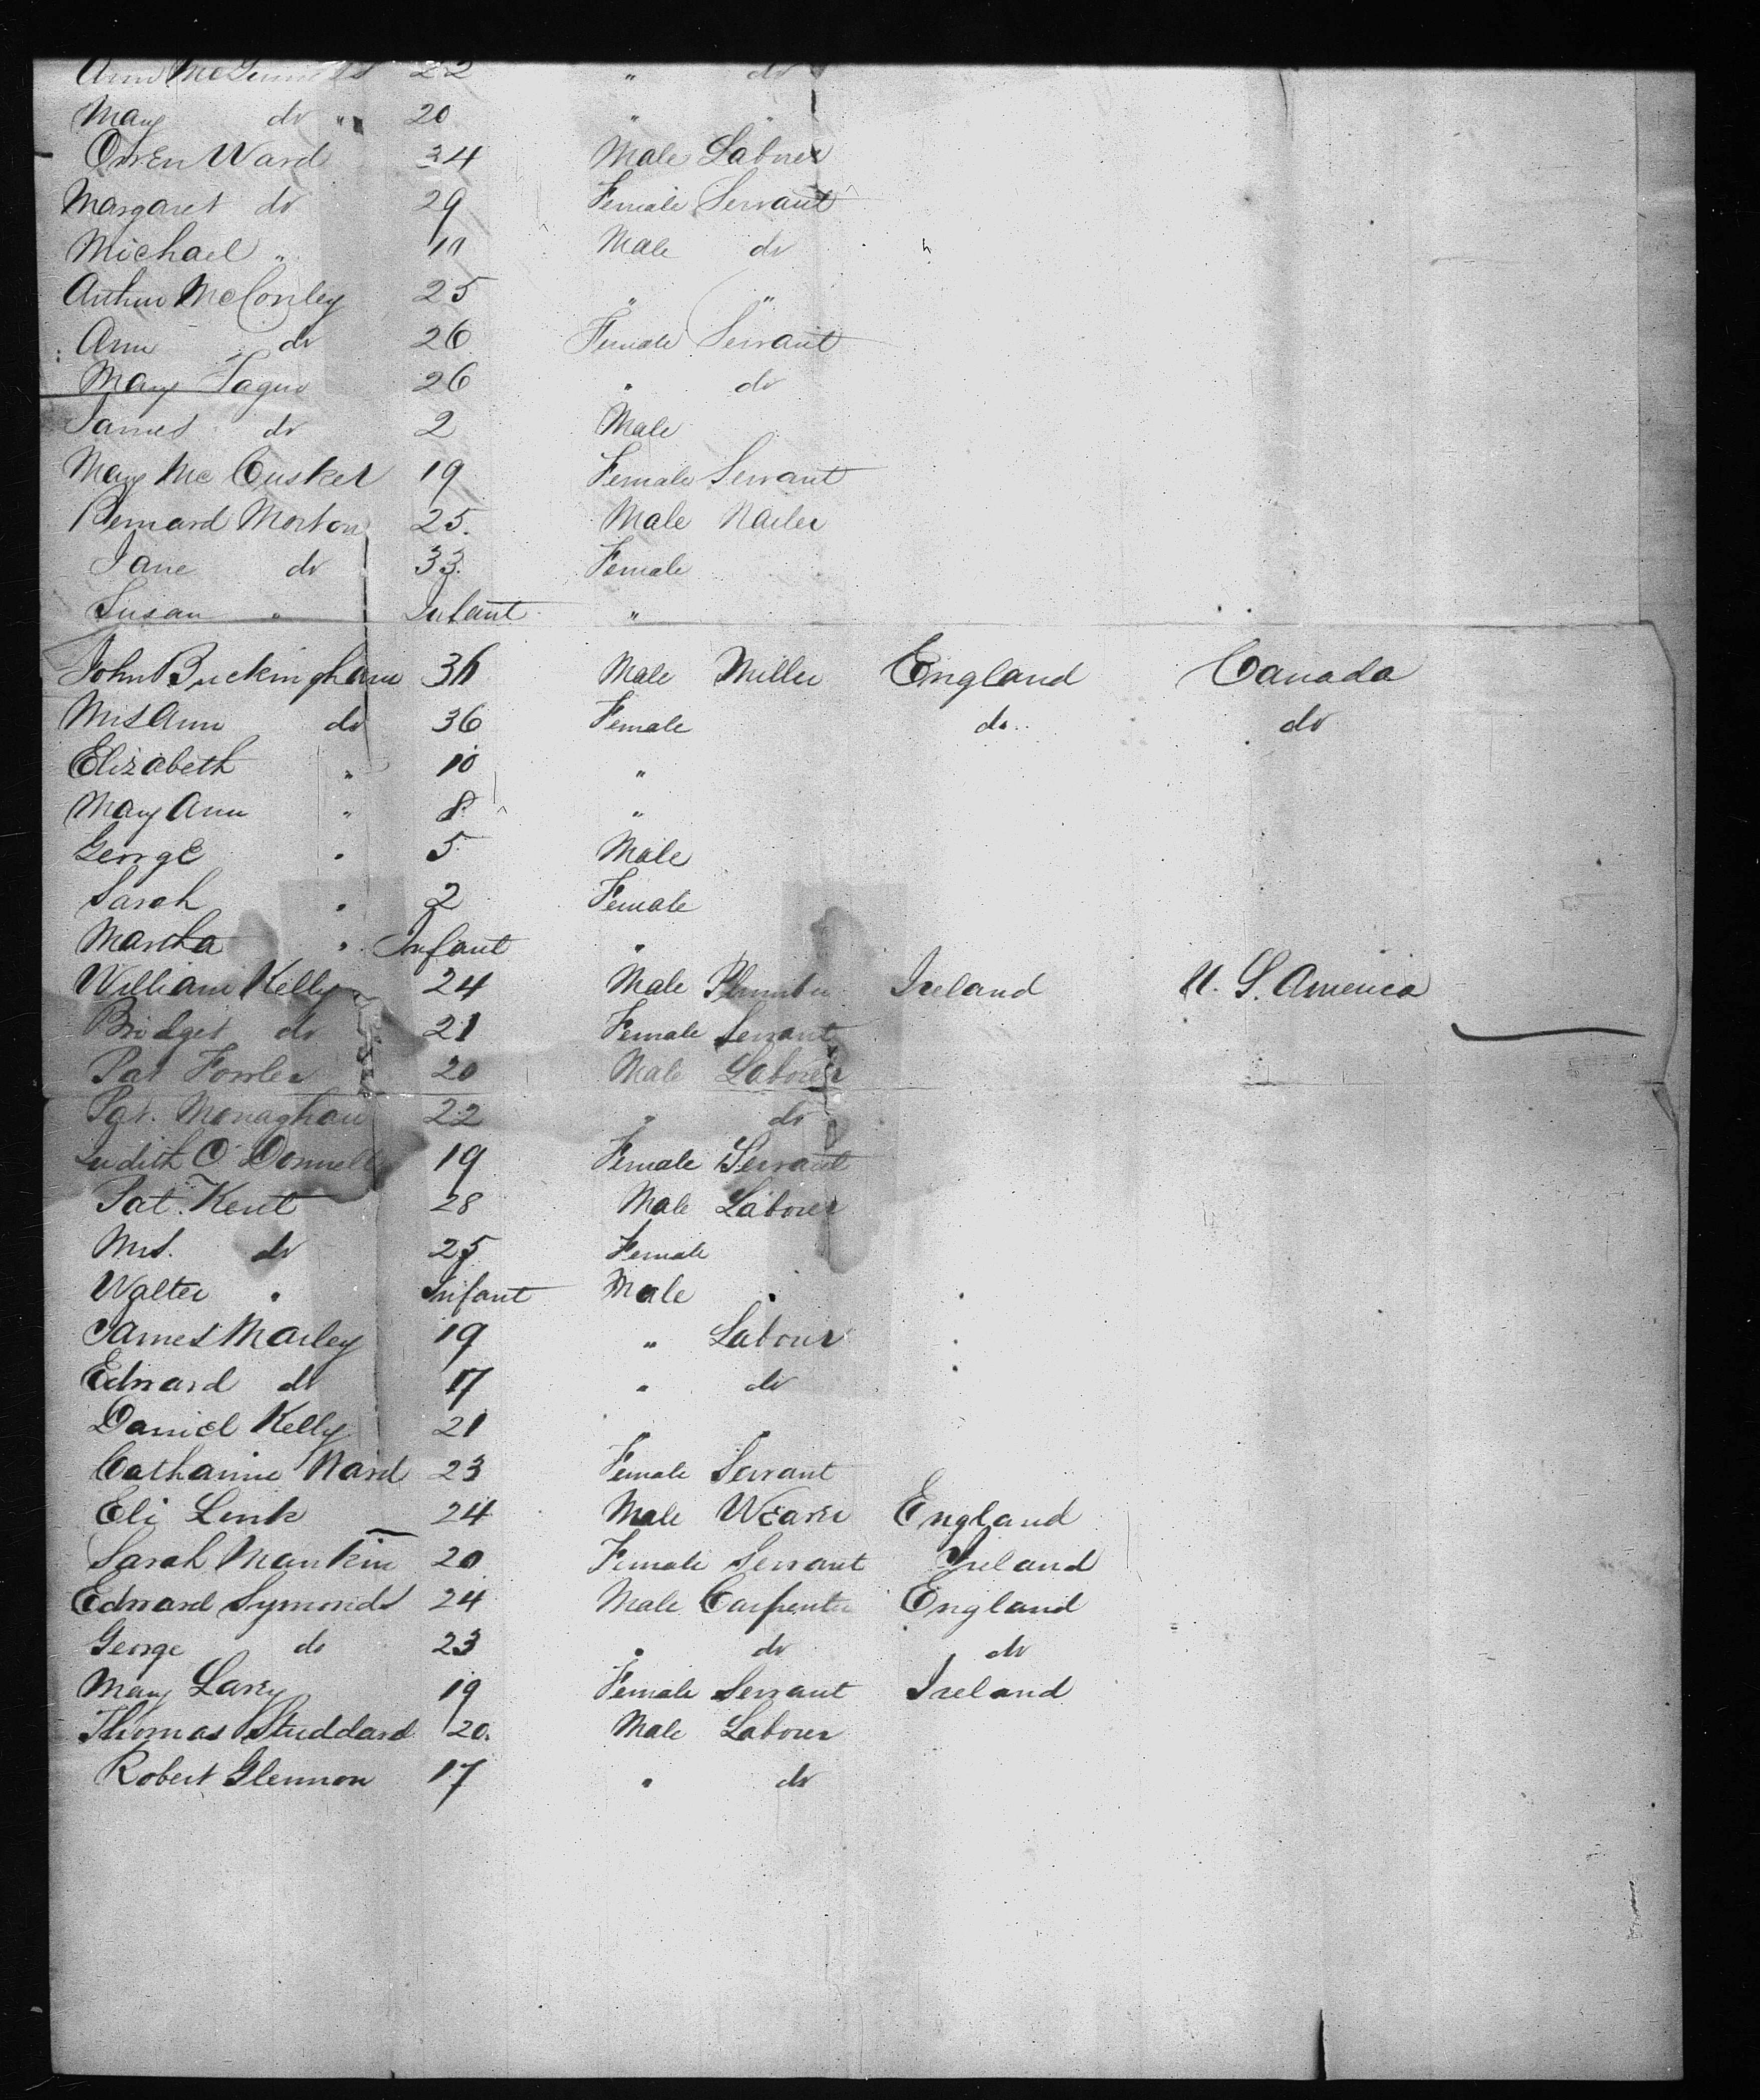 Ann 22 " do
Mary do " 20 " "
Owen Ward 34 Male Laborer
Margaret do 29 Female Servant
Michael " 11 Male do
Arthur McConley 25 " "
Ann do 26 Female Servant
Mary 26 " do
James do 2 Male
Mary Mc Cusker 19 Female Servant
Bernard Morton 25 Male Nailer
Jane do 33 Female
Susan " Infant "
John Buckingham 36 Male Miller England Canada
Mrs Ann do 36 Female do do
Elizabeth " 10 "
Mary Ann " 8 "
George " 5 Male
Sarah " 2 Female
Martha " Infant "
William Kelly 24 Male Plumber Ireland U. S. America
Bridget do 21 Female Servant
Pat Fowler 20 Male Laborer
Pat. Monaghan 22 " do
Judith O'Donnell 19 Female Servant
Pat. Kent 28 Male Laborer
Mrs. do 25 Female
Walter " Infant Male
James Marley 19 " Laborer
Edward do 17 " do
Daniel Kelly 21 " "
Catharine Ward 23 Female Servant
Eli Link 24 Male England
Sarah Mankin 20 Female Servant Ireland
Edward Symonds 24 Male Carpenter England
George do 23 " do do
Mary Lary 19 Female Servant Ireland
Thomas Studdard 20. Male Laborer
Robert Glennon 17 " do